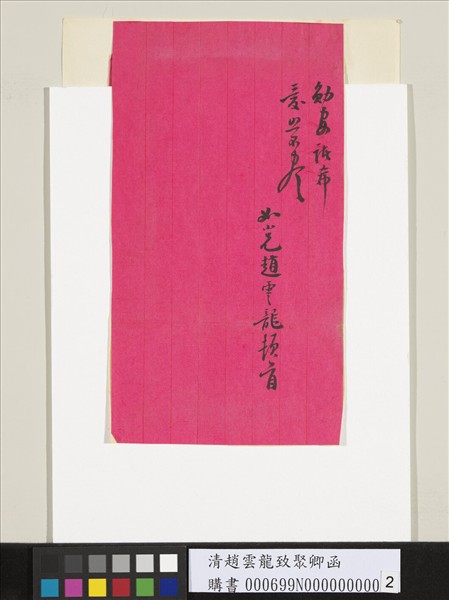 勛安諸希
愛不盡
如小兄趙雲龍頓首
清趙雲龍致聚卿函
購書 000699N000000000 2